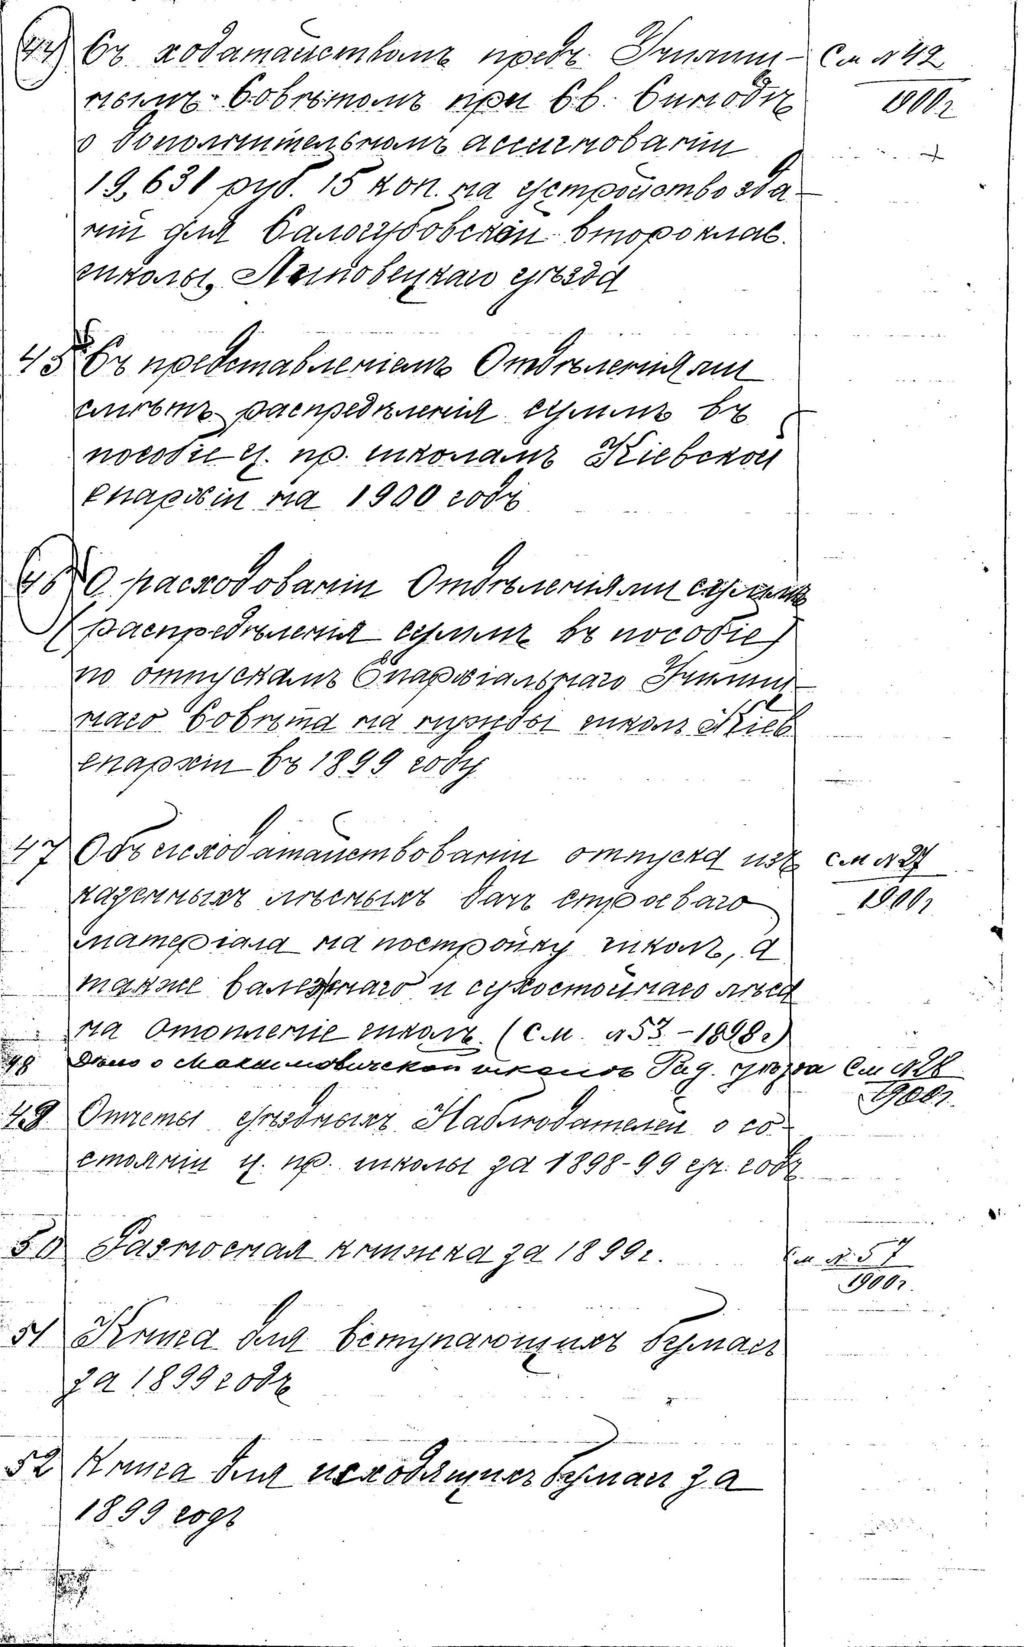 44) Съ ходатайствомъ предъ Училищ- См №42
нымъ Совѣтомъ при Св. Синодѣ 1900г
о дополнительномъ ассигнованіи
19,631 руб. 15 коп. на устройство зда-
ній для Самогубовской второклас.
школы, Липовецкаго уѣзда
45 Съ представленіемъ Отдѣленіями
смѣтъ распредѣленія суммъ въ
пособіе ц. пр. школамъ Кіевской
епархіи на 1900 годъ
46 О расходованіи Отдѣленіями суммъ
(распредѣленія суммъ въ пособіе)
по отпускамъ Епархіальнаго Училищ-
наго Совѣта на нужды школъ Кіев
епархіи въ 1899 году
47 Объ исходатайствованіи отпуска изъ см №27
казенныхъ лѣсныхъ дачъ строеваго 1900г
матеріала на постройку школъ, а
также валежнаго и сухостойнаго лѣса
на отопленіе школъ. (См. №53-1898г)
48 Дѣло о Максимовичской школѣ Рад. уѣзда См №28
1900г.
49 Отчеты уѣздныхъ Наблюдателей о со-
стояніи ц. пр. школы за 1898-99 уч. годъ
50 Разносная книжка за 1899г. См. №57
1900г.
51 Книга для вступающихъ бумагъ
за 1899 годъ
52 Книга для исходящихъ бумагъ за
1899 годъ